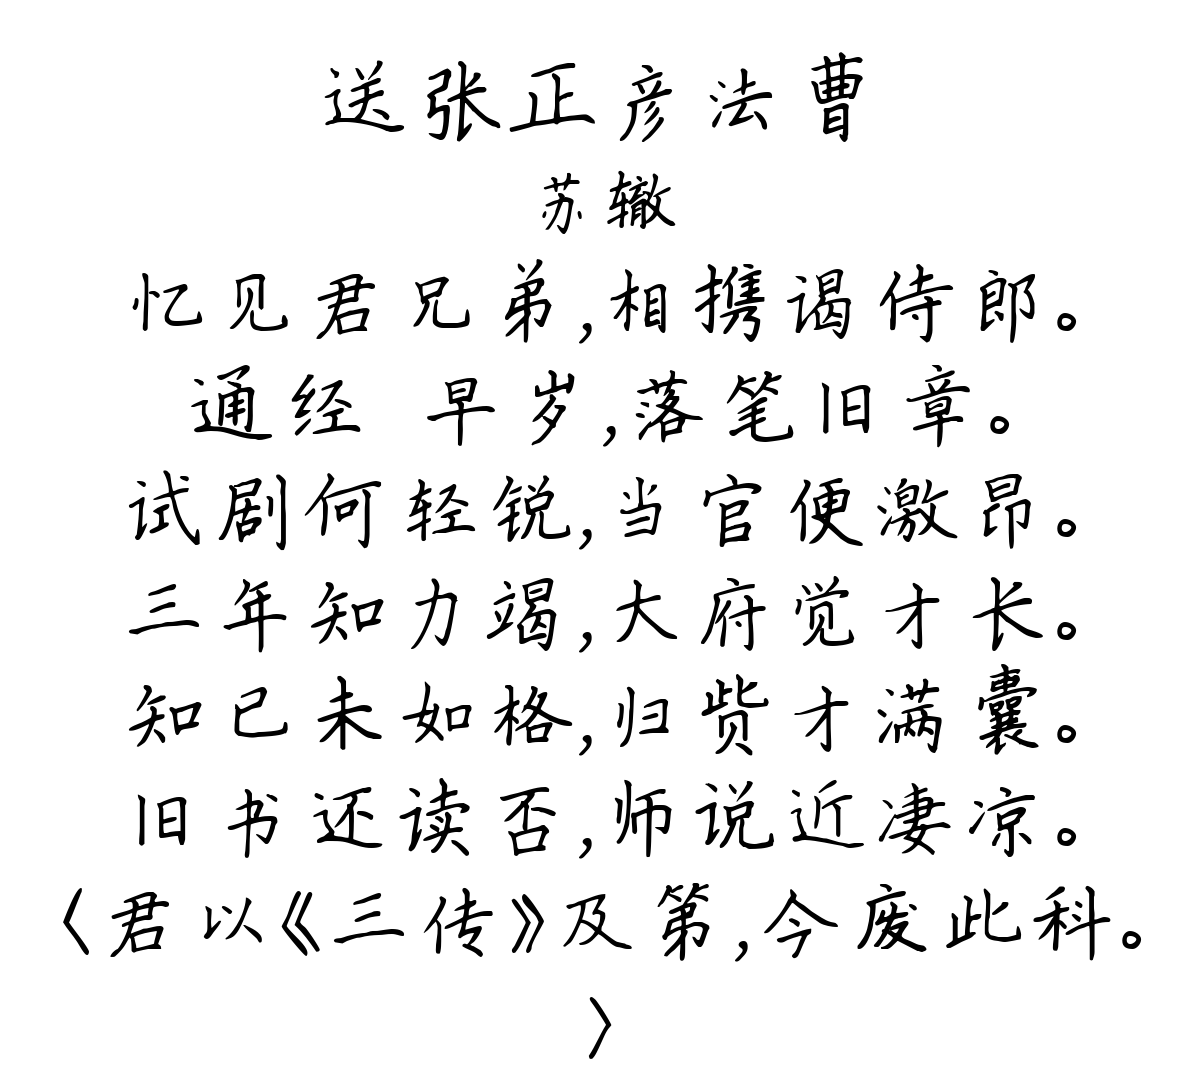 送张正彦法曹
苏辙
忆见君兄弟,相携谒侍郎。
通经 早岁,落笔旧章。
试剧何轻锐,当官便激昂。
三年知力竭,大府觉才长。
知已未如格,归赀才满囊。
旧书还读否,师说近凄凉。
〈君以《三传》及第,今废此科。
〉